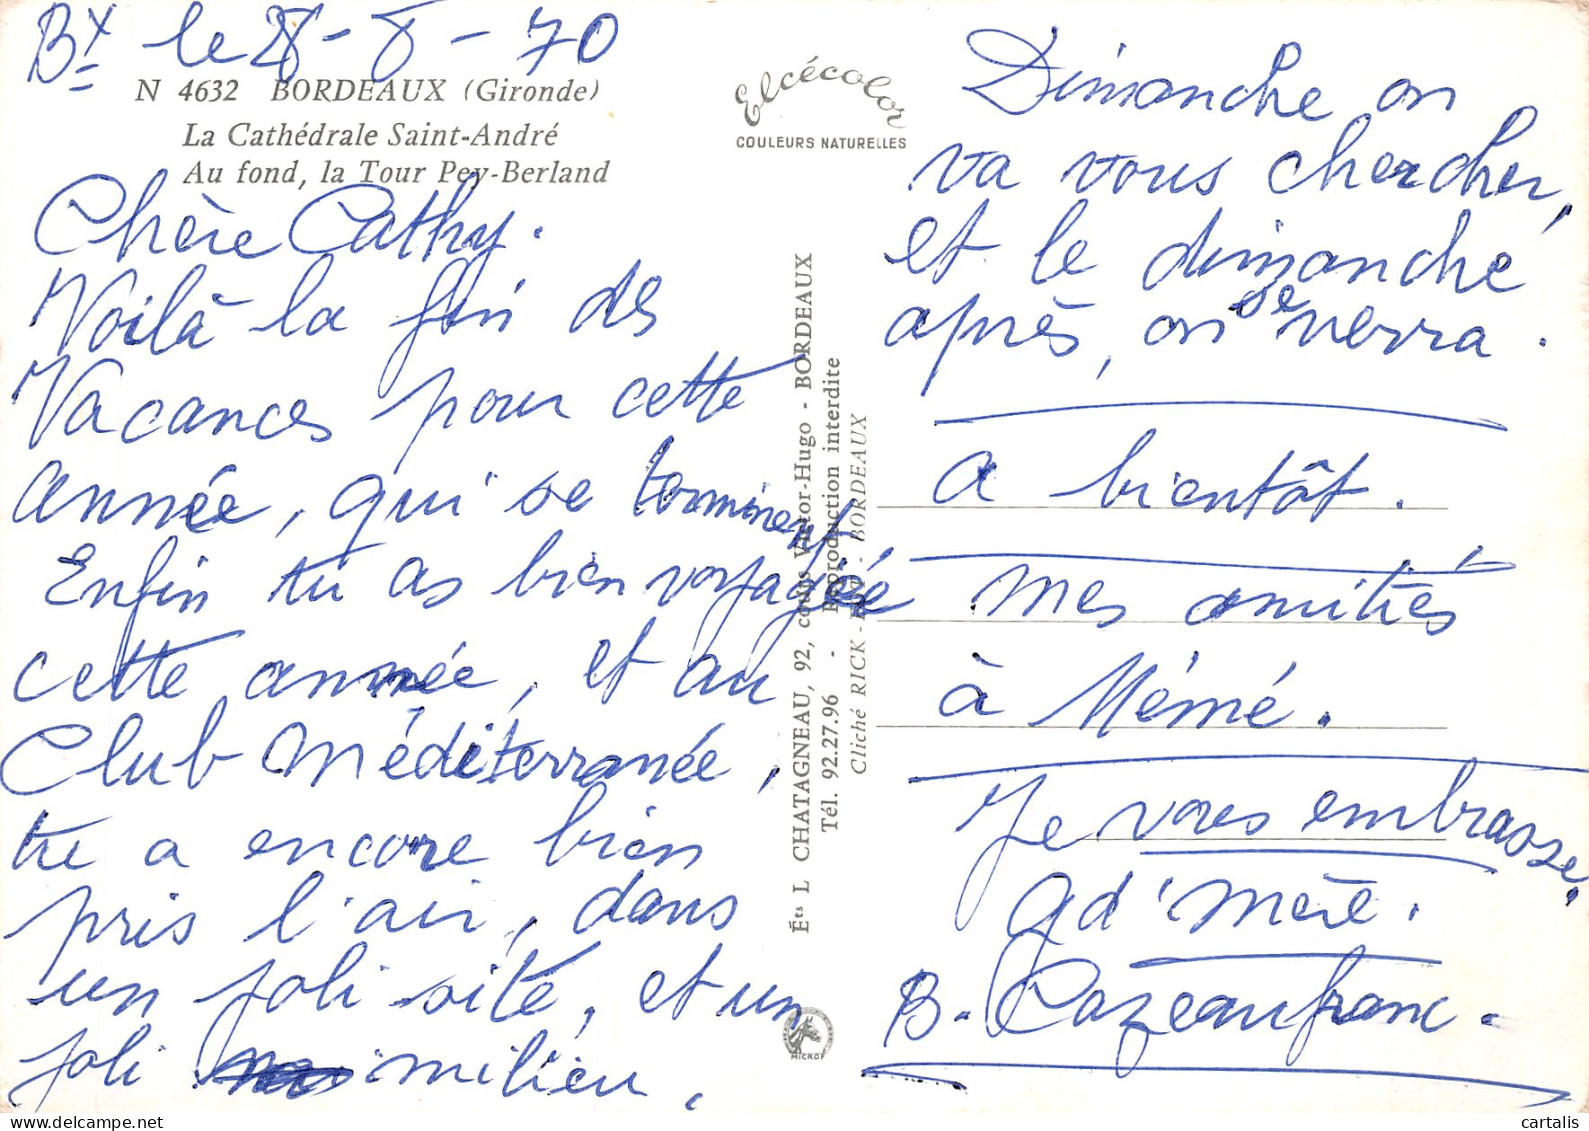 Bx le 28-8-70
N 4632 BORDEAUX (Gironde)
La Cathédrale Saint-André
Au fond, la Tour Pey-Berland
Chère Cathy.
Voilà la fin des
Vacances pour cette
année, qui se terminent
Enfin tu as bien voyagée
cette année, et au
Club Méditerranée,
tu a encore bien
pris l'air, dans
un joli site, et un
joli milieu,
Elcécolor
COULEURS NATURELLES
Éts L CHATAGNEAU, 92, cours Victor-Hugo - BORDEAUX
Tél. 92.27.96 - Reproduction interdite
Cliché RICK - - BORDEAUX
MICROF
Dimanche on
va vous chercher,
et le dimanche
après, on se verra.
a bientôt.
mes amitiés
à Mémé.
Je vous embrasse.
gd'mère.
B. Cazeaufranc.
cartalis